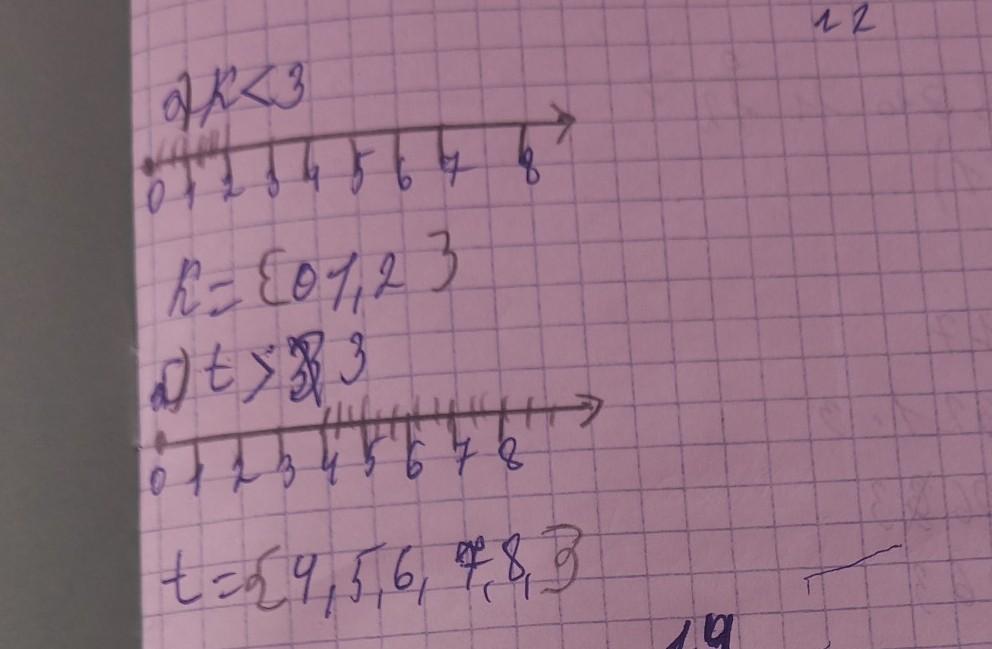 12
а) k < 3
0 1 2 3 4 5 6 7 8
k = {0 1, 2 }
б) t > 3
0 1 2 3 4 5 6 7 8
t = {4, 5, 6, 7, 8, }
19